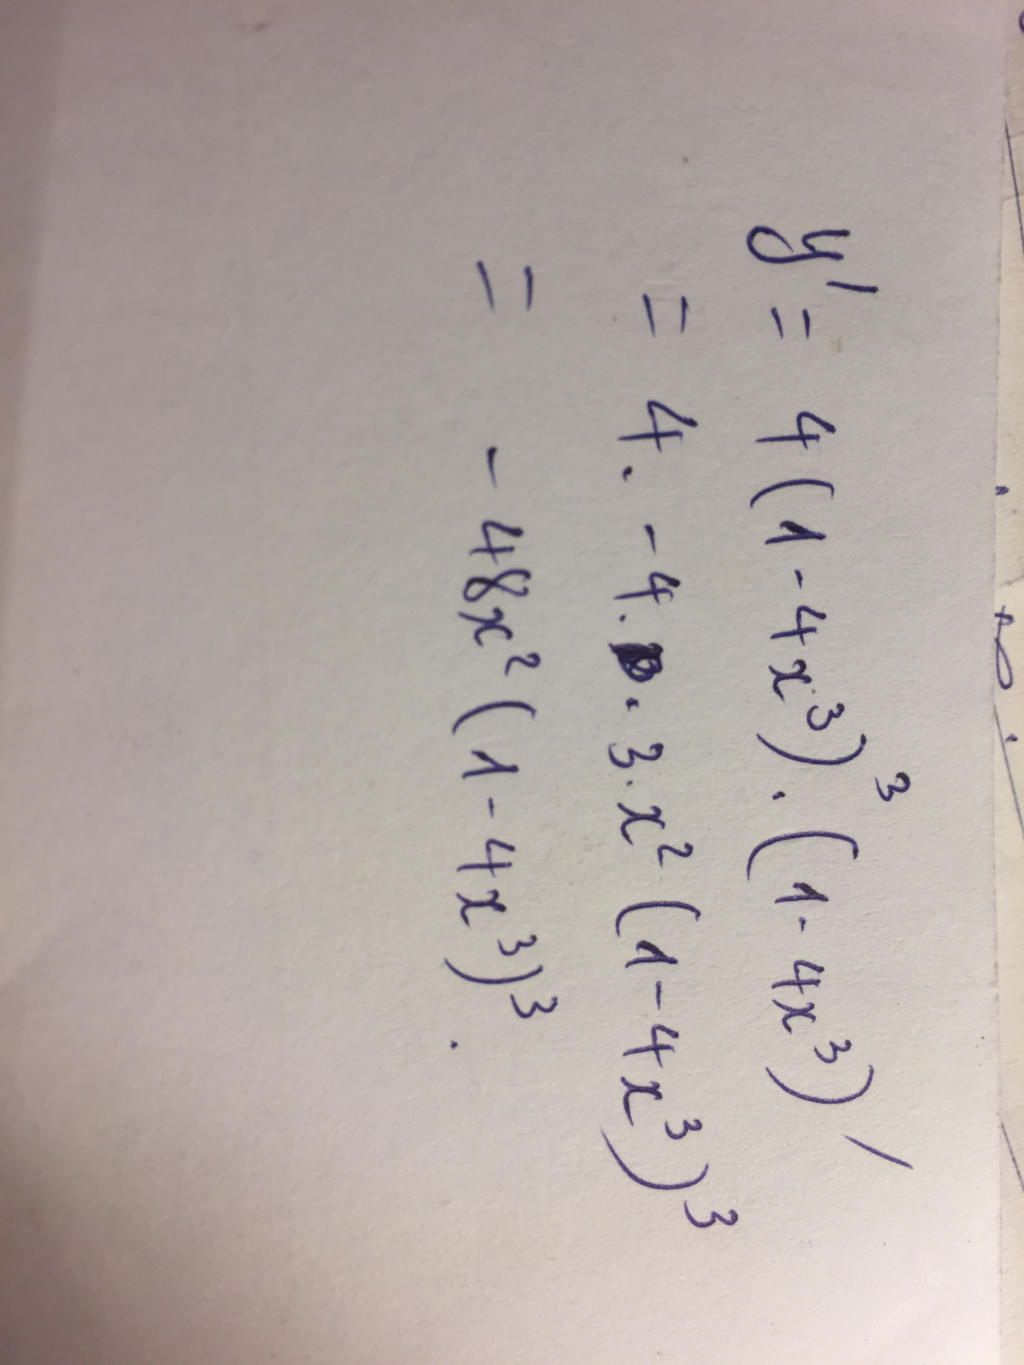 y' = 4(1-4x³)³.(1-4x³)'
= 4. -4. . 3.x²(1-4x³)³
= -48x²(1-4x³)³.